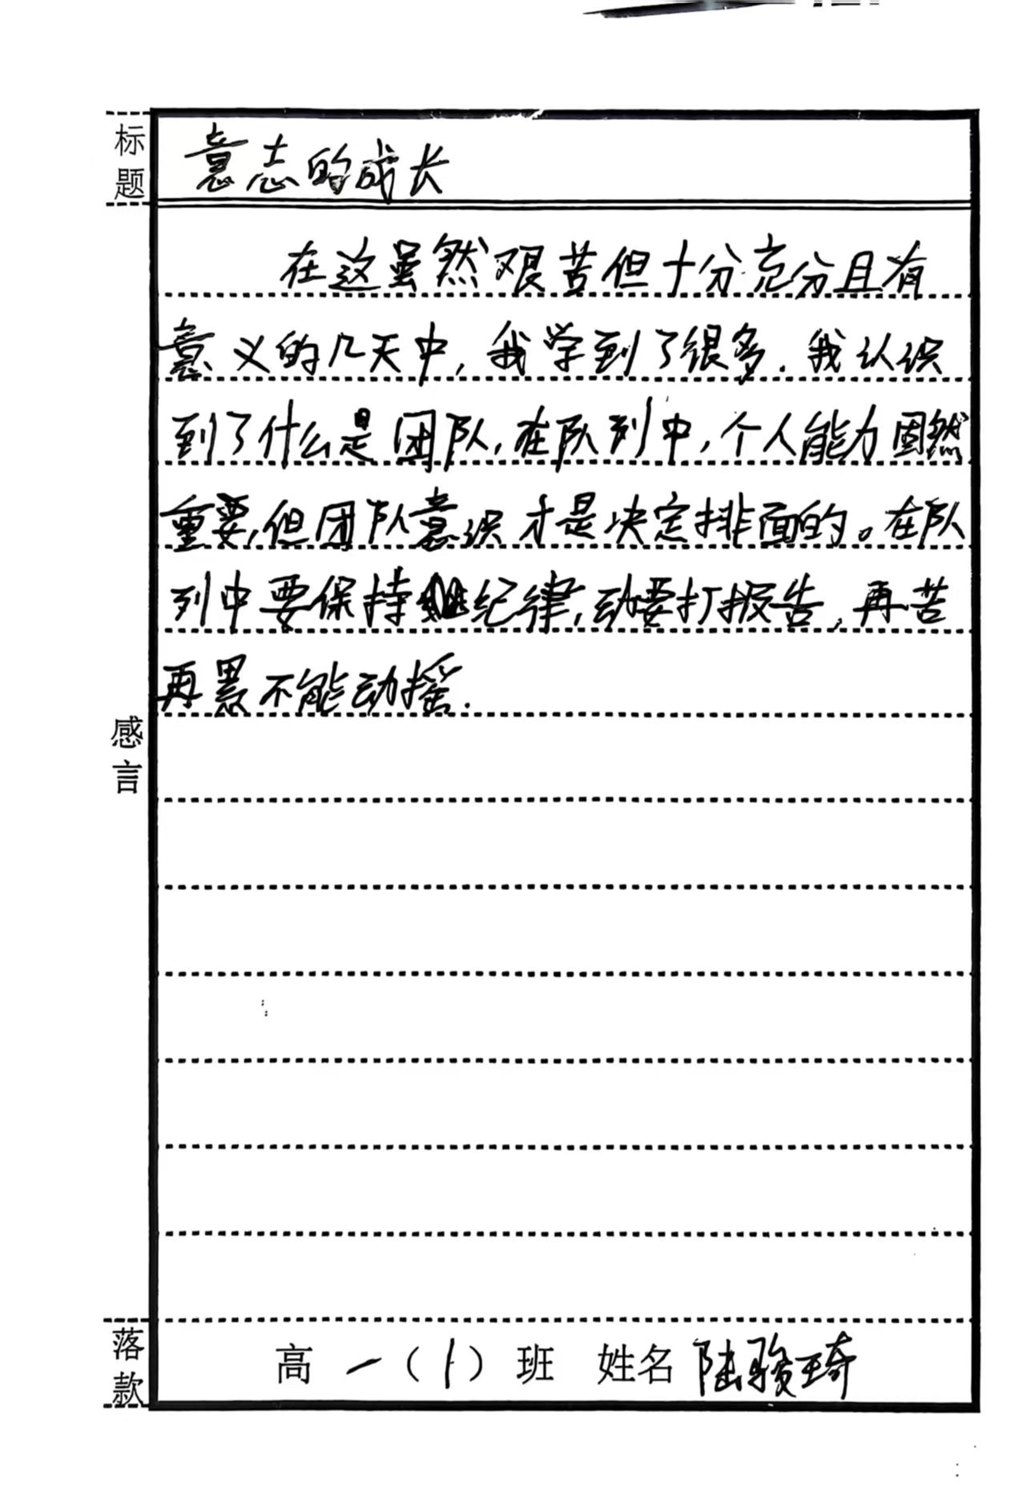 标题
意志的成长
在这虽然艰苦但十分充分且有
意义的几天中,我学到了很多.我认识
到了什么是团队,在队列中,个人能力固然
重要,但团队意识才是决定排面的。在队
列中要保持纪律,动要打报告,再苦
再累不能动摇.
感言
落款
高一(1)班 姓名 陆骏琦